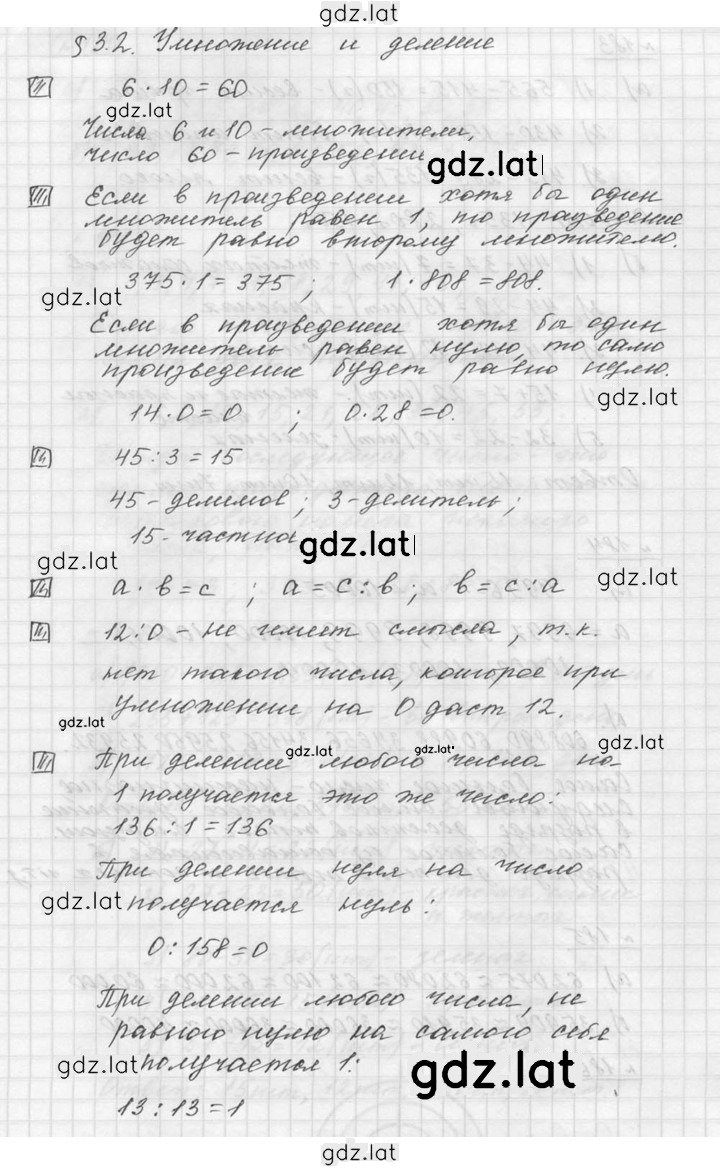 gdz.lat
§ 3.2. Умножение и деление
6 · 10 = 60
gdz.lat
Числа 6 и 10 - множители,
число 60 - произведение
gdz.lat
Если в произведении хотя бы один
множитель равен 1, то произведение
будет равно второму множителю.
375 · 1 = 375 ; 1 · 808 = 808.
gdz.lat
Если в произведении хотя бы один
множитель равен нулю, то само
произведение будет равно нулю.
gdz.lat
14 · 0 = 0 ; 0 · 28 = 0.
45 : 3 = 15
45 - делимое ; 3 - делитель ;
15 - частное
gdz.lat
gdz.lat
gdz.lat
a · b = c ; a = c : b ; b = c : a
12 : 0 - не имеет смысла, т.к.
нет такого числа, которое при
умножении на 0 даст 12.
gdz.lat
gdz.lat
gdz.lat
gdz.lat
При делении любого числа на
1 получается это же число:
136 : 1 = 136
При делении нуля на число
gdz.lat
получается нуль:
0 : 158 = 0
При делении любого числа, не
равного нулю на самого себя
gdz.lat
получается 1:
gdz.lat
13 : 13 = 1
gdz.lat